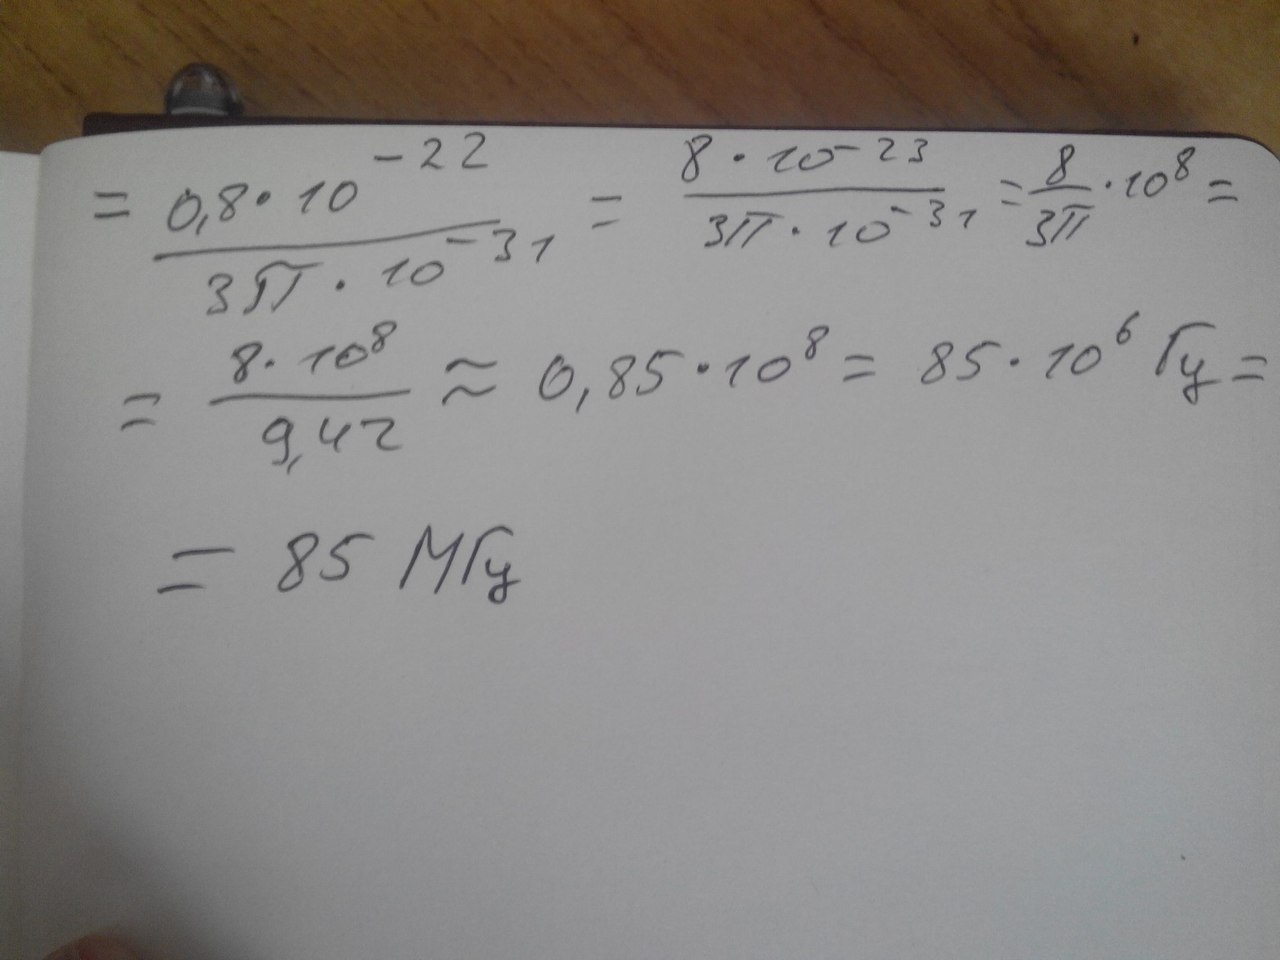 = 0,8·10^-22 / 3π·10^-31 = 8·10^-23 / 3π·10^-31 = 8/3π ·10^8 =
= 8·10^8 / 9,42 ≈ 0,85·10^8 = 85·10^6 Гц =
= 85 МГц